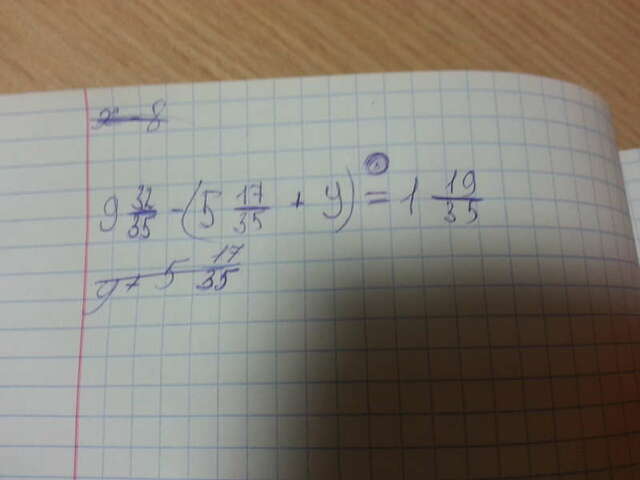 x - 8
9 32/35 - (5 17/35 + y) = 1 19/35
y + 5 17/35